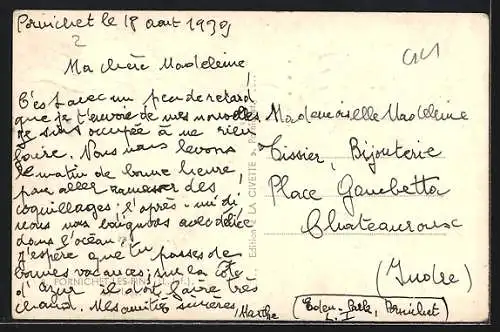 Pornichet le 18 aout 1939
Ma chère Madeleine,
C'est avec un peu de retard
que je t'envoie de mes nouvelles,
je suis occupée à ne rien
faire. Nous nous levons
le matin de bonne heure,
pour aller ramasser des
coquillages ; l'après-midi,
nous nous baignons avec délice
dans l'océan.
J'espère que tu passes de
bonnes vacances ; sur la Côte
d'Azur il doit faire très
chaud. Mes amitiés sincères,
Marthe
Mademoiselle Madeleine
Tissier, Bijouterie
Place Gambetta
Chateauroux
(Indre)
Pornichet)
PORNICHET-LES-PINS
Edition LA CIVETTE